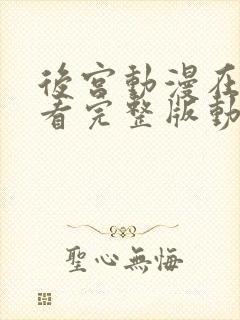 後宮動漫在
看完整版動
聖心無悔